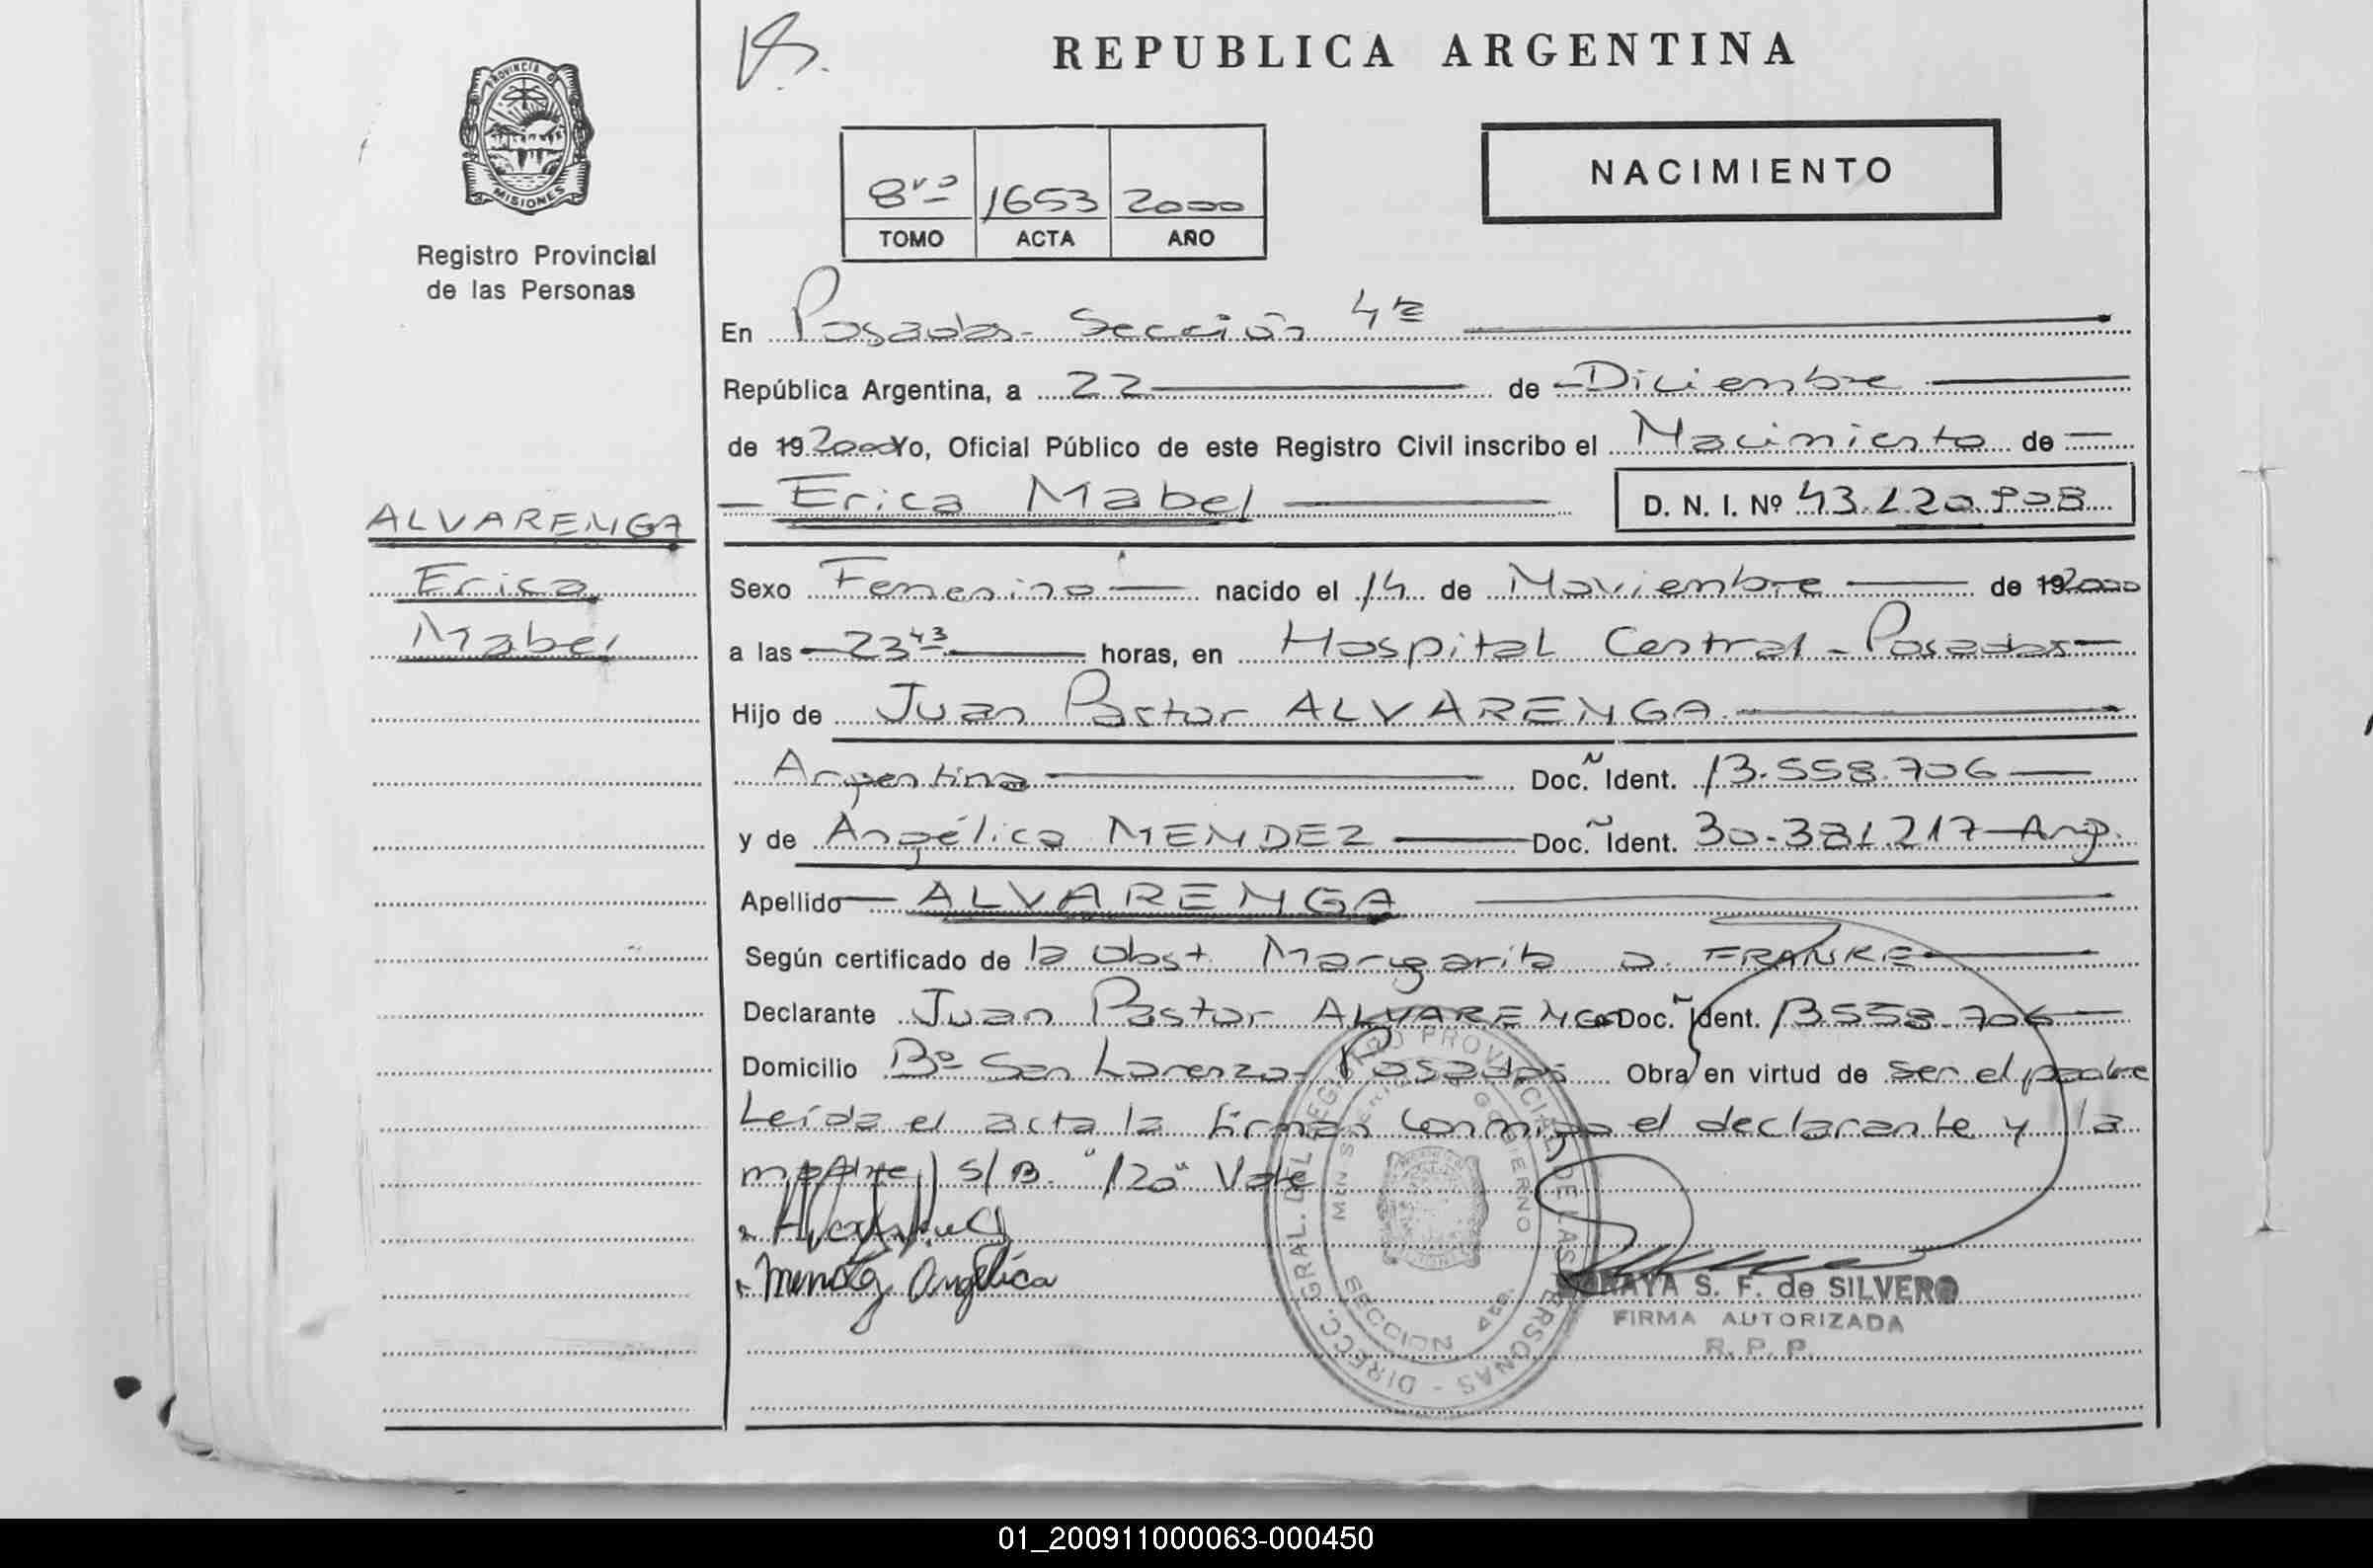 REPUBLICA ARGENTINA
PROVINCIA DE
MISIONES
Registro Provincial
de las Personas
8vo 1653 2000
TOMO ACTA AÑO
NACIMIENTO
En Posadas- Sección 4ta
República Argentina, a 22 de Diciembre
de 19 2000 Yo, Oficial Público de este Registro Civil inscribo el Nacimiento de
Erica Mabel D. N. I. Nº 43.120.908
ALVARENGA
Erica
Mabel
Sexo Femenino nacido el 14 de Noviembre de 19 2000
a las 23 43 horas, en Hospital Central - Posadas
Hijo de Juan Pastor ALVARENGA
Argentina Doc. Ident. 13.558.706
y de Angélica MENDEZ Doc. Ident. 30.381.217 Arg.
Apellido ALVARENGA
Según certificado de la Obst. Margarita a. FRANKE
Declarante Juan Pastor ALVARENGA Doc. Ident. 13.558.706
Domicilio Bº San Lorenzo- Posadas Obra en virtud de ser el padre
Leída el acta la firman conmigo el declarante y la
madre) S/B. "120" Vale
Mendez Angélica
DIRECC. GRAL. DEL REGISTRO PROVINCIAL DE LAS PERSONAS
GOBIERNO
SECCION 4ta.
S. F. de SILVERO
FIRMA AUTORIZADA
R. P. P.
01_200911000063-000450